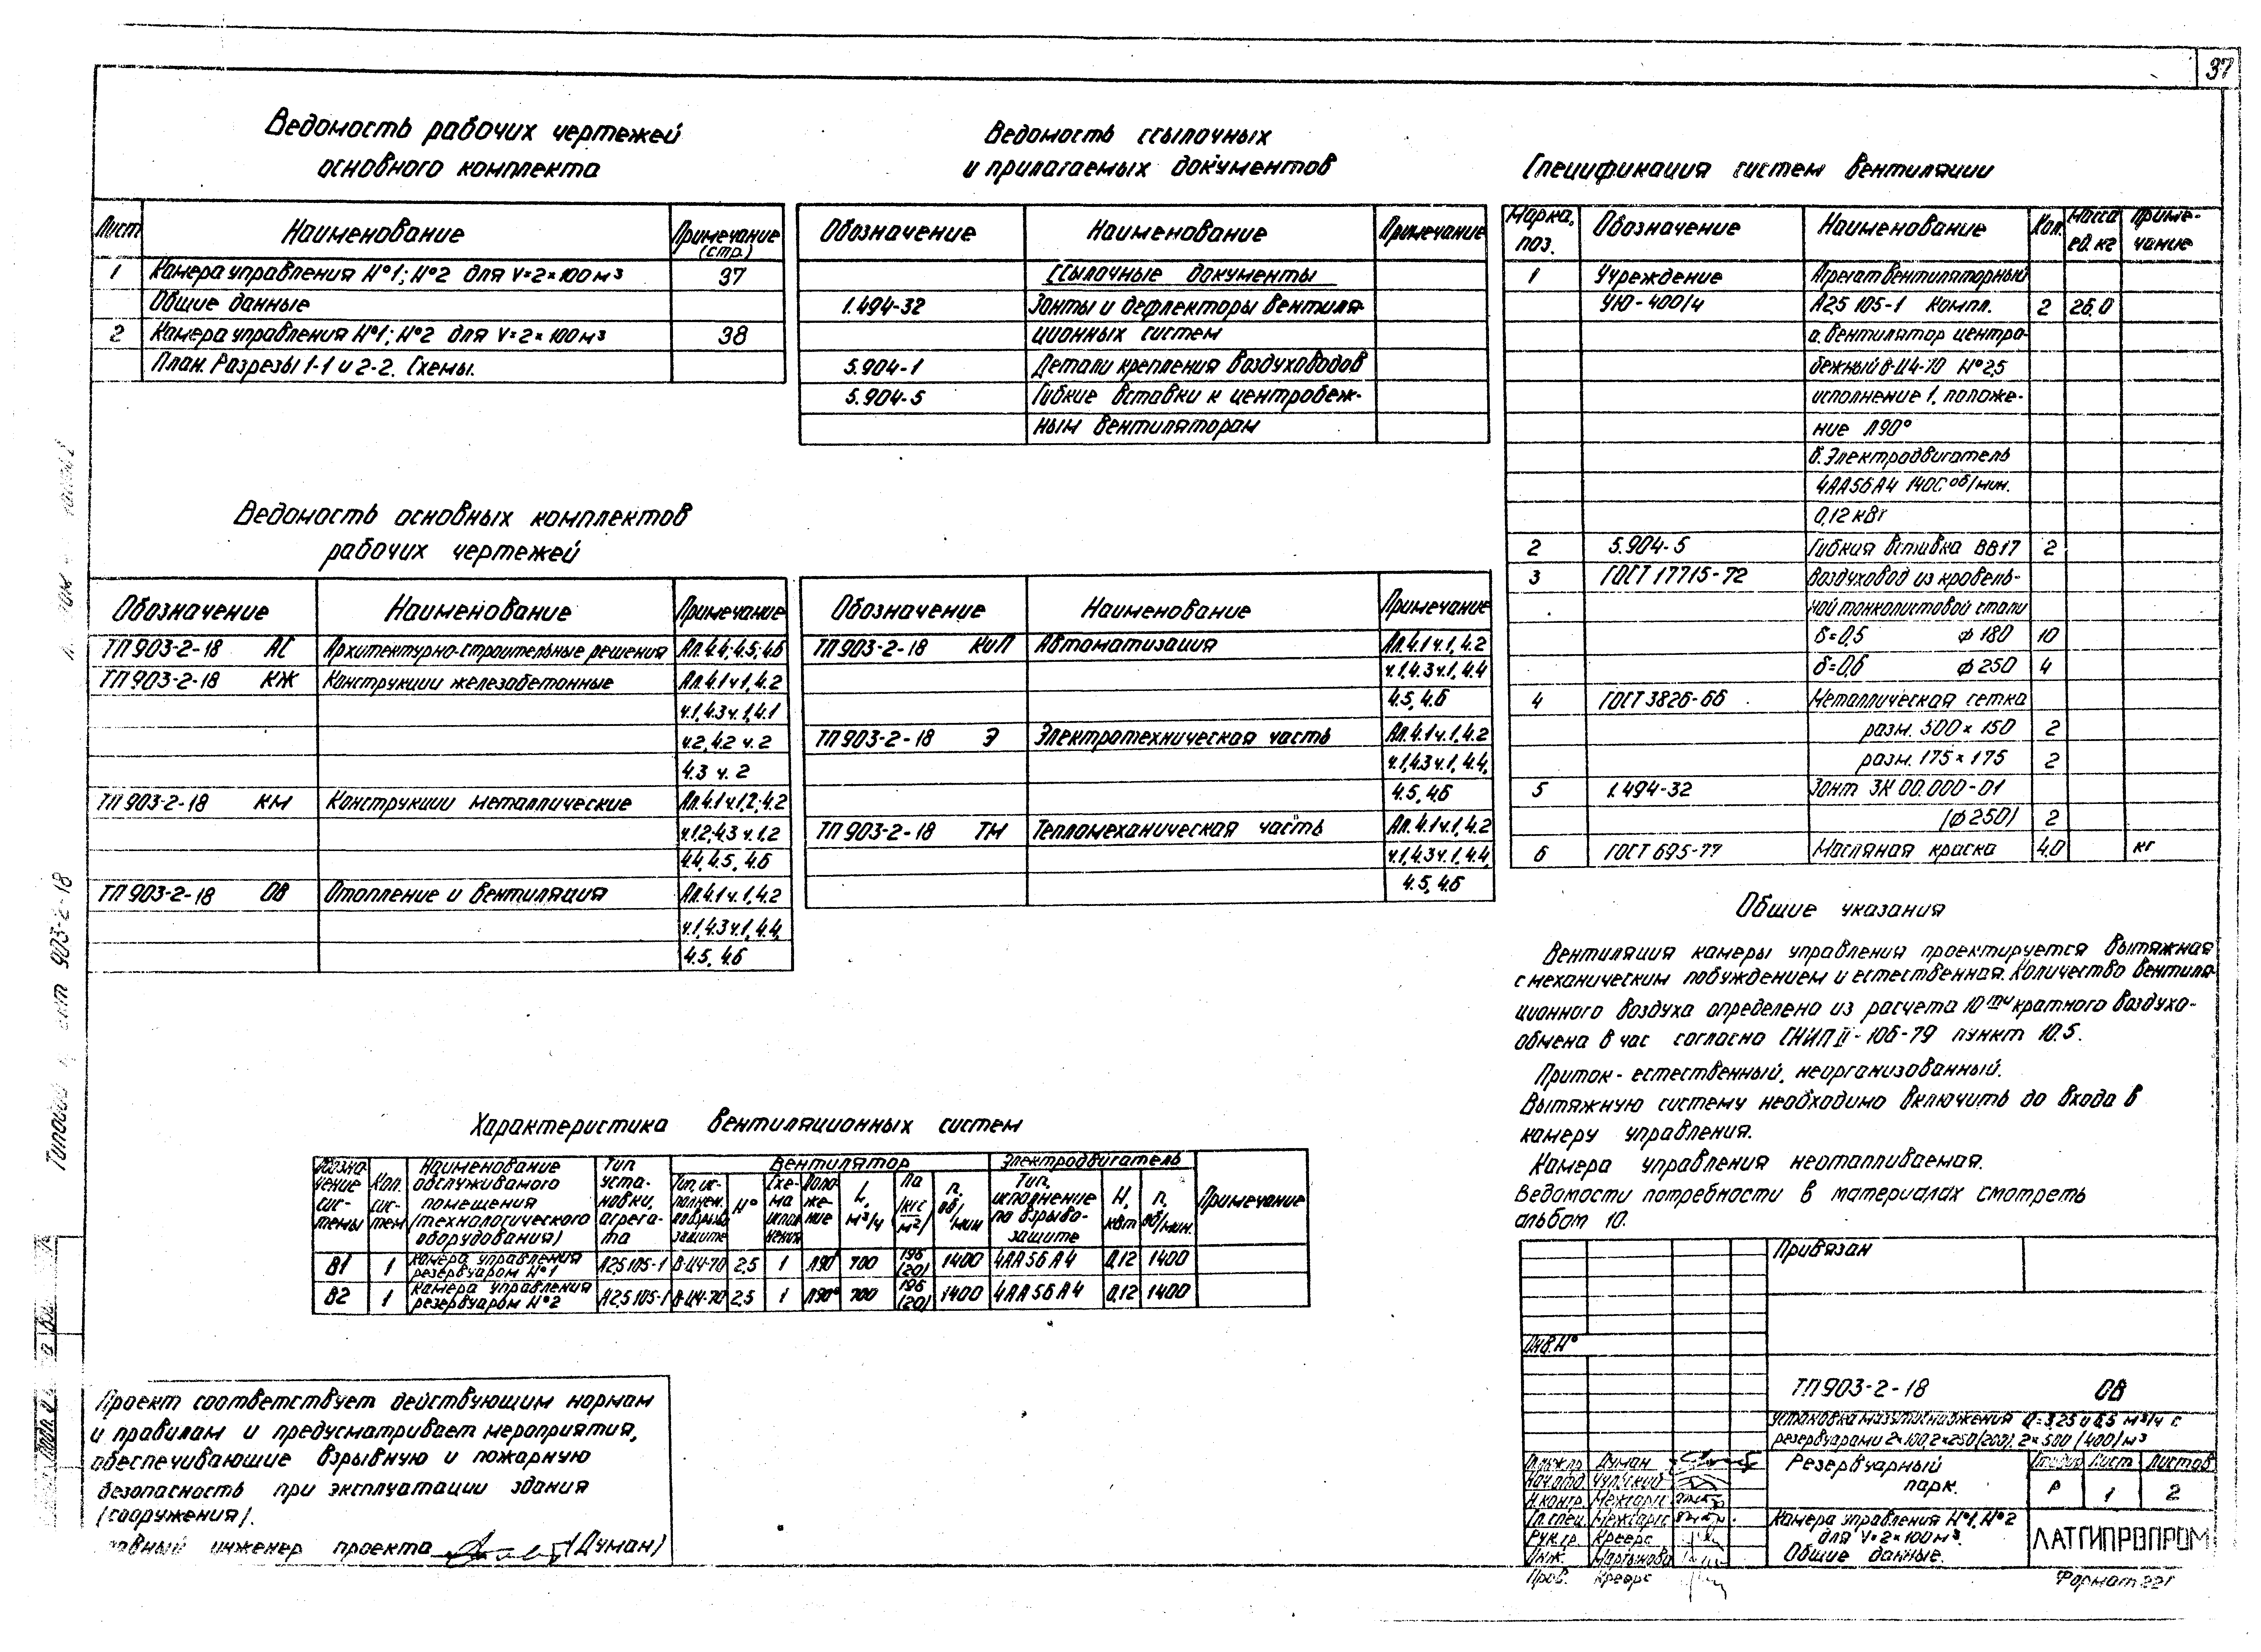 37
Ведомость рабочих чертежей
основного комплекта
Лист Наименование Примечание (стр.)
1 Камера управления №1; №2 для V=2×100м³ 37
Общие данные
2 Камера управления №1; №2 для V=2×100м³ 38
План. Разрезы 1-1 и 2-2. Схемы.
Ведомость ссылочных
и прилагаемых документов
Обозначение Наименование Примечание
Ссылочные документы
1.494-32 Зонты и дефлекторы вентиля-
ционных систем
5.904-1 Детали крепления воздуховодов
5.904-5 Гибкие вставки к центробеж-
ным вентиляторам
Ведомость основных комплектов
рабочих чертежей
Обозначение Наименование Примечание
ТП 903-2-18 АС Архитектурно-строительные решения Ал.4.4; 4.5; 4.6
ТП 903-2-18 КЖ Конструкции железобетонные Ал.4.1 ч.1, 4.2
ч.1, 4.3 ч.1, 4.1
ч.2, 4.2 ч.2
4.3 ч.2
ТП 903-2-18 КМ Конструкции металлические Ал.4.1 ч.1,2; 4.2
ч.1.2; 4.3 ч.1.2
4.4, 4.5, 4.6
ТП 903-2-18 ОВ Отопление и вентиляция Ал.4.1 ч.1, 4.2
ч.1, 4.3 ч.1, 4.4,
4.5, 4.6
Обозначение Наименование Примечание
ТП 903-2-18 КиП Автоматизация Ал.4.1 ч.1, 4.2
ч.1, 4.3 ч.1, 4.4
4.5, 4.6
ТП 903-2-18 Э Электротехническая часть Ал.4.1 ч.1, 4.2
ч.1, 4.3 ч.1, 4.4,
4.5, 4.6
ТП 903-2-18 ТМ Тепломеханическая часть Ал.4.1 ч.1, 4.2
ч.1, 4.3 ч.1, 4.4,
4.5, 4.6
Спецификация систем вентиляции
Марка, поз. Обозначение Наименование Кол. Масса ед. кг Приме-чание
1 Учреждение Агрегат вентиляторный
УЮ-400/4 А25 105-1 компл. 2 26,0
а. Вентилятор центро-
бежный В-Ц4-70 №2,5
исполнение 1, положе-
ние Л90°
б. Электродвигатель
4АА56А4 1400 об/мин.
0,12 кВт
2 5.904-5 Гибкая вставка ВВ17 2
3 ГОСТ 17715-72 Воздуховод из кровель-
ной тонколистовой стали
δ=0,5 ф 180 10
δ=0,6 ф 250 4
4 ГОСТ 3826-66 Металлическая сетка
разм. 500×150 2
разм. 175×175 2
5 1.494-32 Зонт ЗК 00.000-01
(ф250) 2
6 ГОСТ 695-77 Масляная краска 4,0 кг
Общие указания
Вентиляция камеры управления проектируется вытяжная
с механическим побуждением и естественная. Количество вентиля-
ционного воздуха определено из расчета 10ти кратного воздухо-
обмена в час согласно СНИП II-106-79 пункт 10.5.
Приток - естественный, неорганизованный.
Вытяжную систему необходимо включить до входа в
камеру управления.
Камера управления неотапливаемая.
Ведомости потребности в материалах смотреть
альбом 10.
Характеристика вентиляционных систем
Обозна-чение сис-темы Кол. сис-тем Наименование обслуживаемого помещения (технологического оборудования) Тип уста-новки, агрега-та Вентилятор Электродвигатель Примечание
Тип, ис-полнен. по взрыво-защите № Схе-ма испол-нения Поло-же-ние L, м³/ч Па (кгс/м²) n, об/мин Тип, исполнение по взрыво-защите N, кВт n, об/мин.
В1 1 Камера управления резервуаром №1 А2,5 105-1 В-Ц4-70 2,5 1 Л90° 700 196 (20) 1400 4АА56А4 0,12 1400
В2 1 Камера управления резервуаром №2 А2,5 105-1 В-Ц4-70 2,5 1 Л90° 700 196 (20) 1400 4АА56А4 0,12 1400
Проект соответствует действующим нормам
и правилам и предусматривает мероприятия,
обеспечивающие взрывную и пожарную
безопасность при эксплуатации здания
(сооружения).
Главный инженер проекта (Думан)
Привязан
Инв.№
ТП 903-2-18 ОВ
Установка мазутоснабжения Q=3,25 и 6,5 м³/ч с
резервуарами 2×100, 2×250(200), 2×500 (400) м³
Резервуарный
парк.
Стадия Лист Листов
Р 1 2
Камера управления №1, №2
для V=2×100м³.
Общие данные.
ЛАТГИПРОПРОМ
Гл.инж.пр. Думан
Нач.отд. Чульский
Н.контр. Межсаргс
Гл.спец. Межсаргс
Рук.гр. Креерс
Инж. Мартынова
Пров. Креерс
Формат 22Г
903-2-18